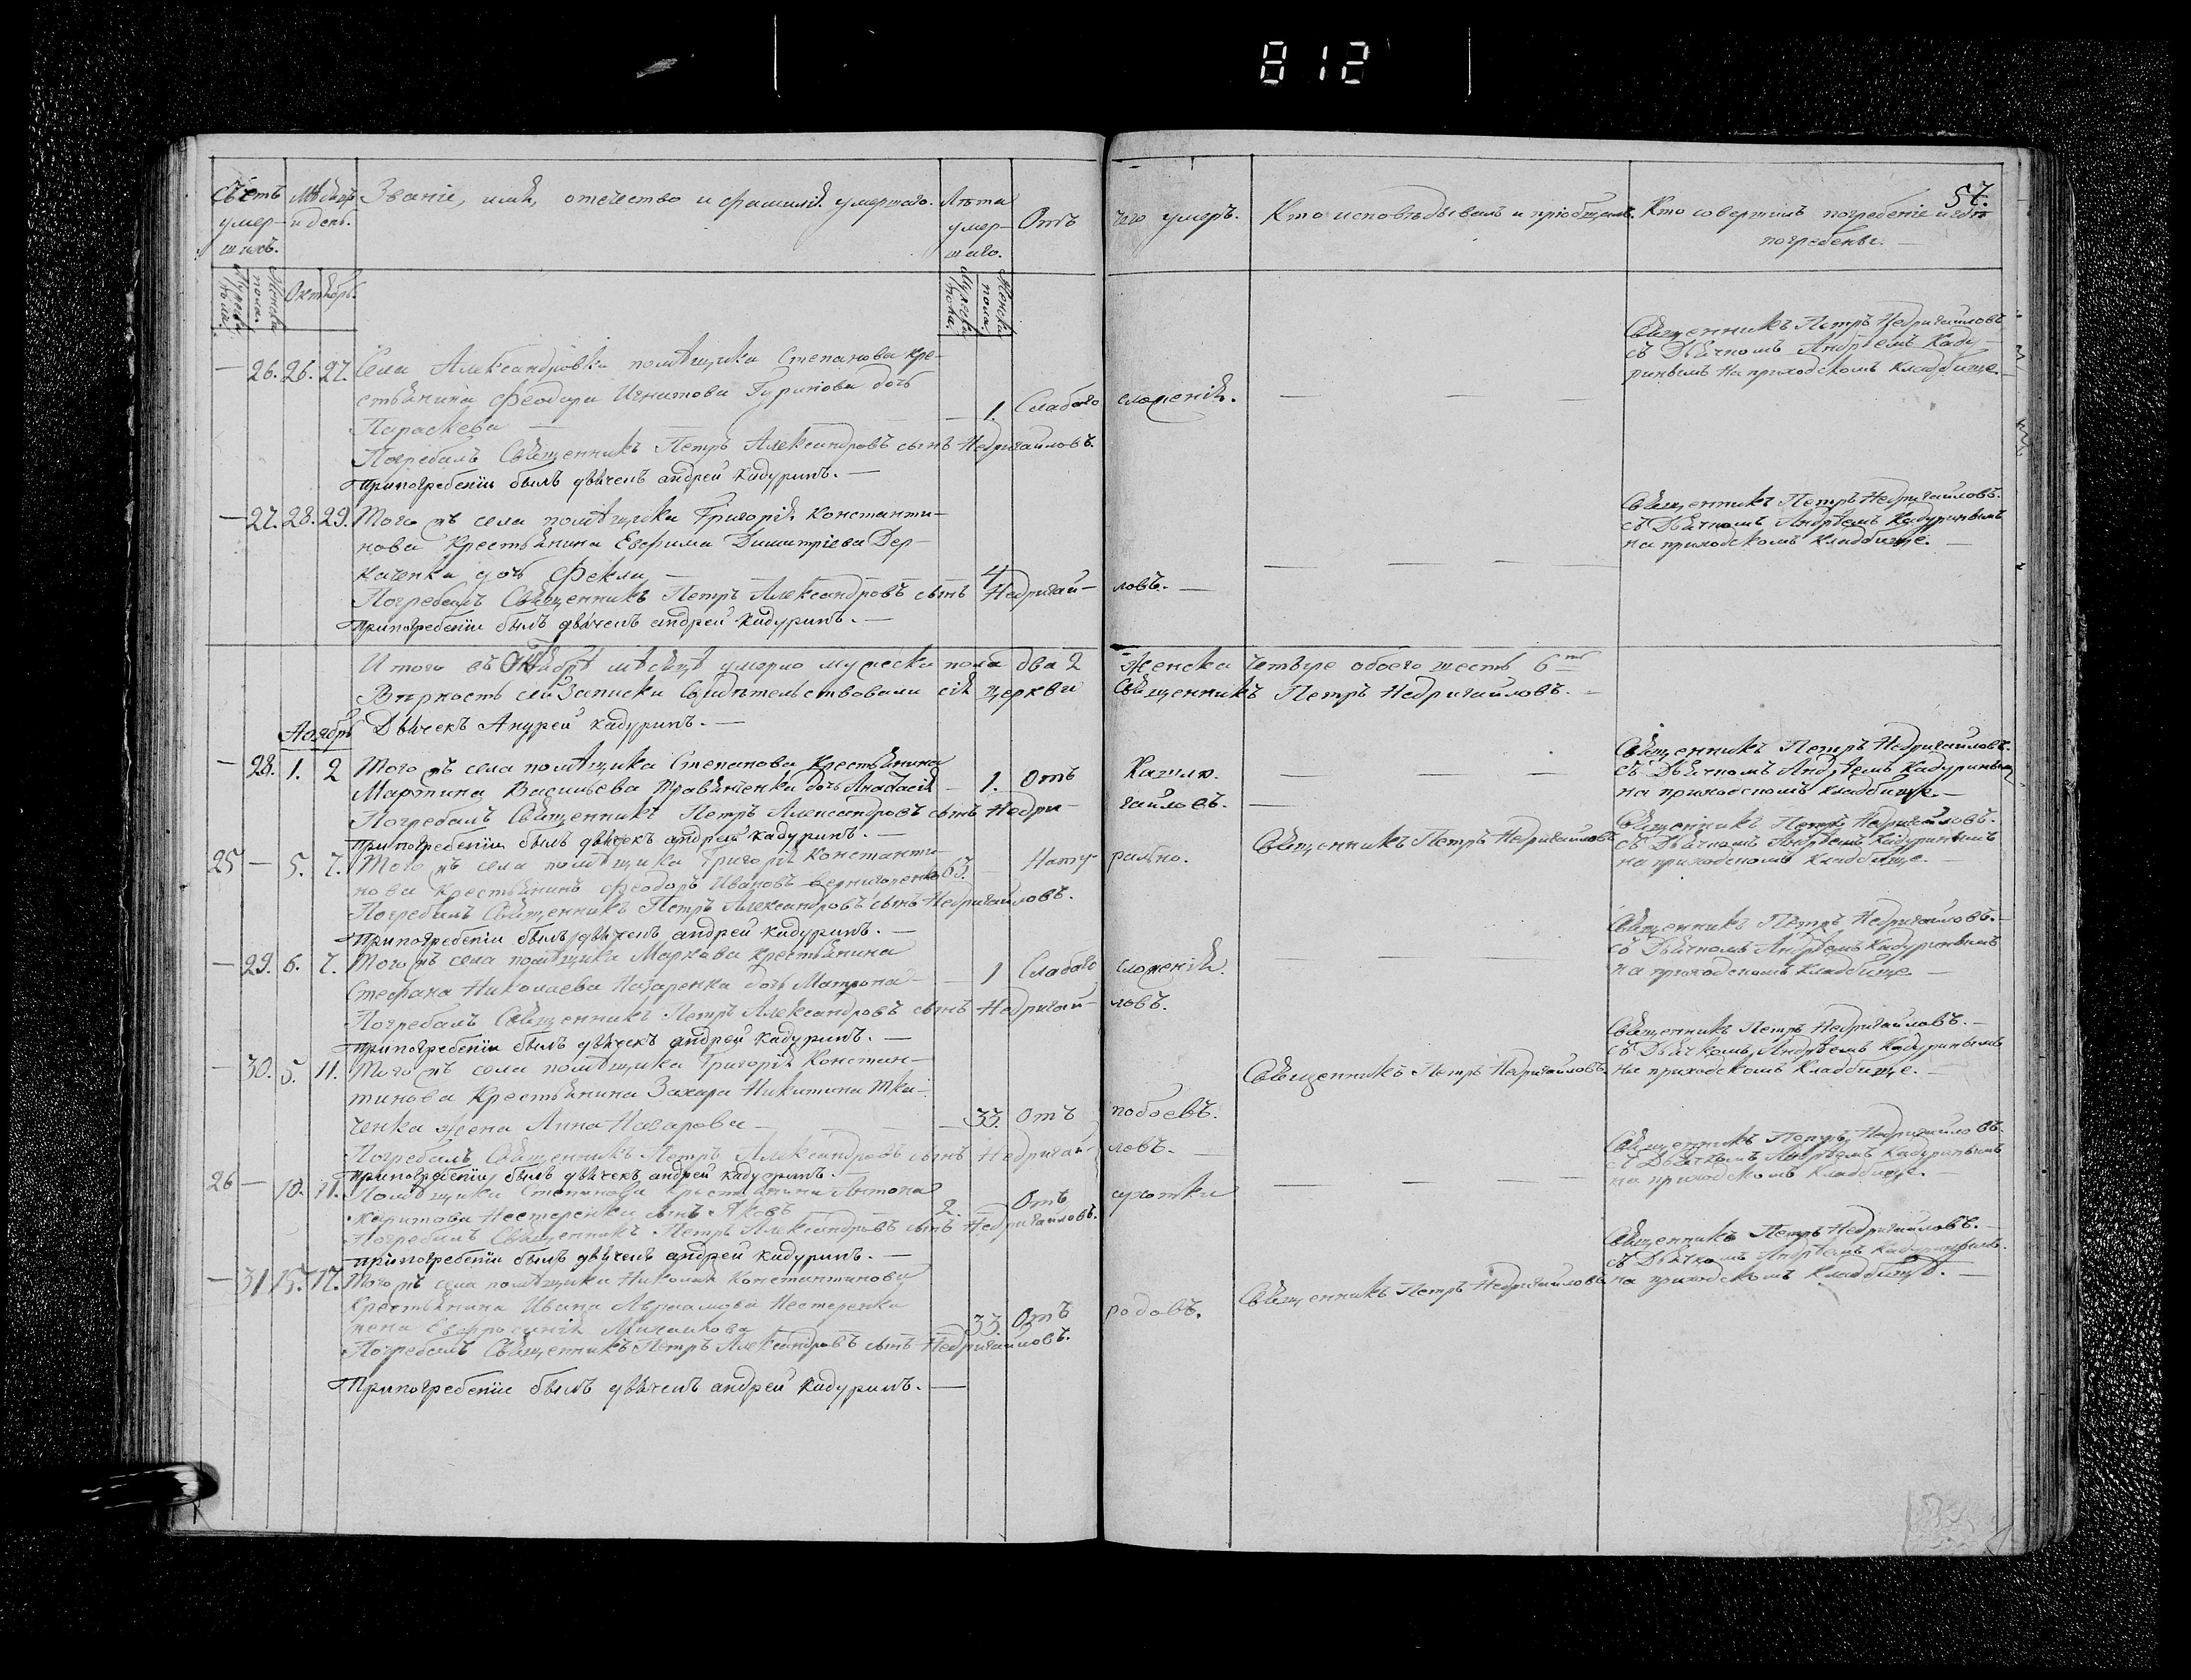 812
57.
Счетъ умер-шихъ.
Мѣсяцъ и день.
Званіе, имя, отчество и фамилія умершаго.
Лѣта умер-шаго.
Отъ чего умеръ.
Кто исповѣдывалъ и пріобщалъ.
Кто совершилъ погребеніе и гдѣ погребены.
Мужеска пола. Женска
Октябрь.
Мужеска пола. Женска пола.
— 26. 26. 27. Села Александровки помѣщика Степанова кре-
стьянина Феодора Игнатова Гуринова дочь
Параскева — — 1. Слабаго сложенія. — — —
Священникъ Петръ Недригайловъ
съ Дьячкомъ Андреемъ Каду-
ринымъ На приходскомъ кладбище.
Погребалъ Священникъ Петръ Александровъ сынъ Недригайловъ.
При погребеніи былъ дьячекъ андрей кадуринъ. —
— 27. 28. 29. Того жъ села помѣщика Григорія Константи-
нова Крестьянина Евфима Димитріева Дер-
каченка дочь Фекла — 4 — — —
Священникъ Петръ Недригайловъ.
съ Дьячкомъ Андреемъ Кадуринымъ
на приходскомъ кладбище. —
Погребалъ Священникъ Петръ Александровъ сынъ Недригай- ловъ. —
При погребеніи былъ дьячекъ андрей кадуринъ. —
Итого въ Октябрѣ мѣсяцѣ умерло мужеска пола два 2 женска четыре обоего шесть 6ть
Вѣрность сей записки свидѣтельствовали сія церкви Священникъ Петръ Недригайловъ. —
Дьячекъ Андрей кадуринъ. —
Ноябрь
— 28. 1. 2 Того жъ села помѣщика Степанова Крестьянина
Мартина Васильева Травянченка дочь Анастасія — 1. Отъ Кашлю. — — —
Священникъ Петръ Недригайловъ.
съ Дьячкомъ Андреемъ Кадуринымъ
на приходскомъ кладбище. —
Погребалъ Священникъ Петръ Александровъ сынъ Недри- гайловъ. —
При погребеніи былъ дьячекъ андрей кадуринъ. —
25 — 5. 7. Того жъ села помѣщика Григорія Константи-
нова Крестьянинъ Феодоръ Ивановъ Вернигоренко 63. — Нату- рально. Священникъ Петръ Недригайловъ
Священникъ Петръ Недригайловъ.
съ Дьячкомъ Андреемъ Кадуринымъ
на приходскомъ кладбище. —
Погребалъ Священникъ Петръ Александровъ сынъ Недригайловъ.
При погребеніи былъ дьячекъ андрей кадуринъ. —
— 29. 6. 7. Того жъ села помѣщика Маркова крестьянина
Стефана Николаева Назаренка дочь Матрона — — 1 Слабаго сложенія. — — —
Священникъ Петръ Недригайловъ. —
съ Дьячкомъ Андреемъ Кадуринымъ
на приходскомъ кладбище —
Погребалъ Священникъ Петръ Александровъ сынъ Недригай- ловъ.
При погребеніи былъ дьячекъ андрей кадуринъ. —
— 30. 5. 11. Того жъ села помѣщика Григорія Констан-
тинова Крестьянина Захара Никитина Тка-
ченка жена Анна Назарова — — 33. Отъ побоевъ. Священникъ Петръ Недригайловъ.
Священникъ Петръ Недригайловъ. —
съ Дьячкомъ Андреемъ Кадуринымъ
на приходскомъ кладбище. —
Погребалъ Священникъ Петръ Александровъ сынъ Недригай- ловъ. —
При погребеніи былъ дьячекъ андрей кадуринъ. —
26 — 10. 11. Помѣщика Степанова крестьянина Антона
Харитова Нестеренка сынъ Яковъ 2. Отъ сухотки — — —
Священникъ Петръ Недригайловъ.
съ Дьячкомъ Андреемъ Кадуринымъ
на приходскомъ кладбище. —
Погребалъ Священникъ Петръ Александровъ сынъ Недригайловъ.
При погребеніи былъ дьячекъ андрей кадуринъ. —
— 31 15. 17. Того жъ села помѣщика Николая Константинова
Крестьянина Ивана Аврамова Нестеренка
жена Евфросинія Михайлова 33. Отъ родовъ. Священникъ Петръ Недригайловъ
Священникъ Петръ Недригайловъ. —
съ Дьячкомъ Андреемъ Кадуринымъ.
на приходскомъ кладбищѣ. —
Погребалъ Священникъ Петръ Александровъ сынъ Недригайловъ.
При погребеніи былъ дьячекъ андрей кадуринъ. —